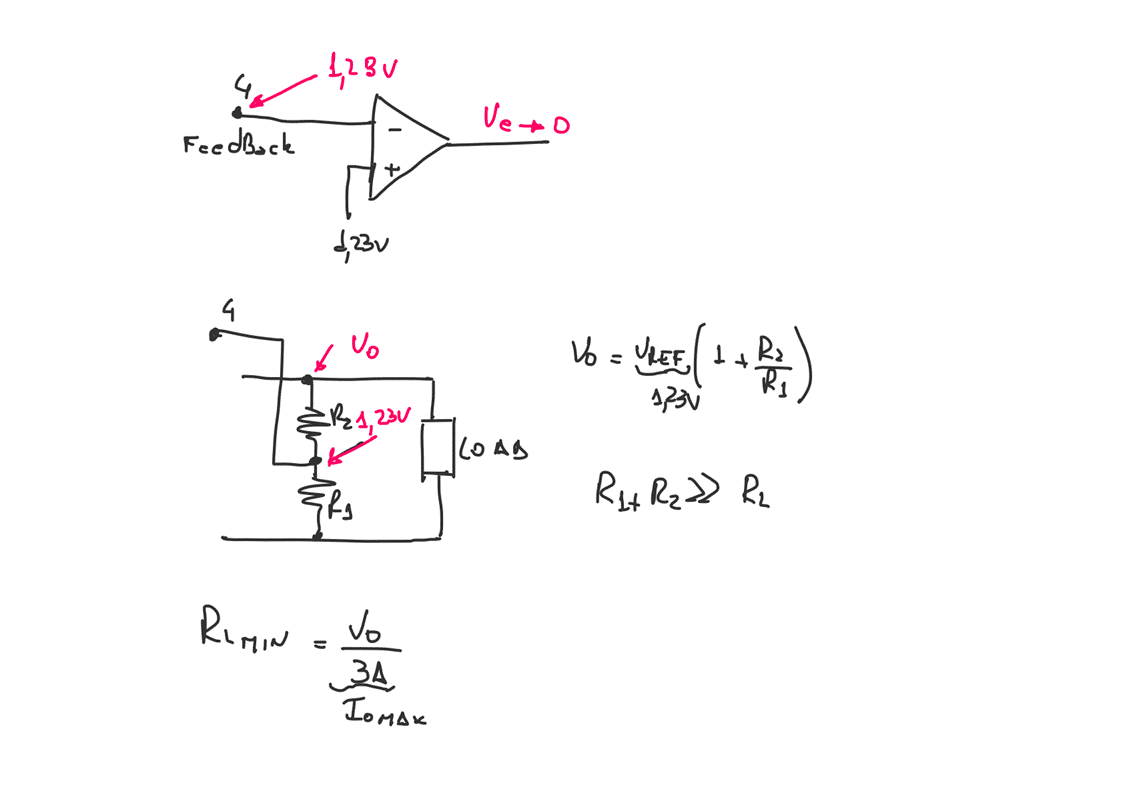 4
1,23V
FeedBack
-
+
Ve → 0
1,23V
4
V0
R2
1,23V
R1
LOAD
V0 = VREF (1 + R2/R1)
1,23V
R1+R2 >> RL
RLMIN = V0/3A
IOMAX